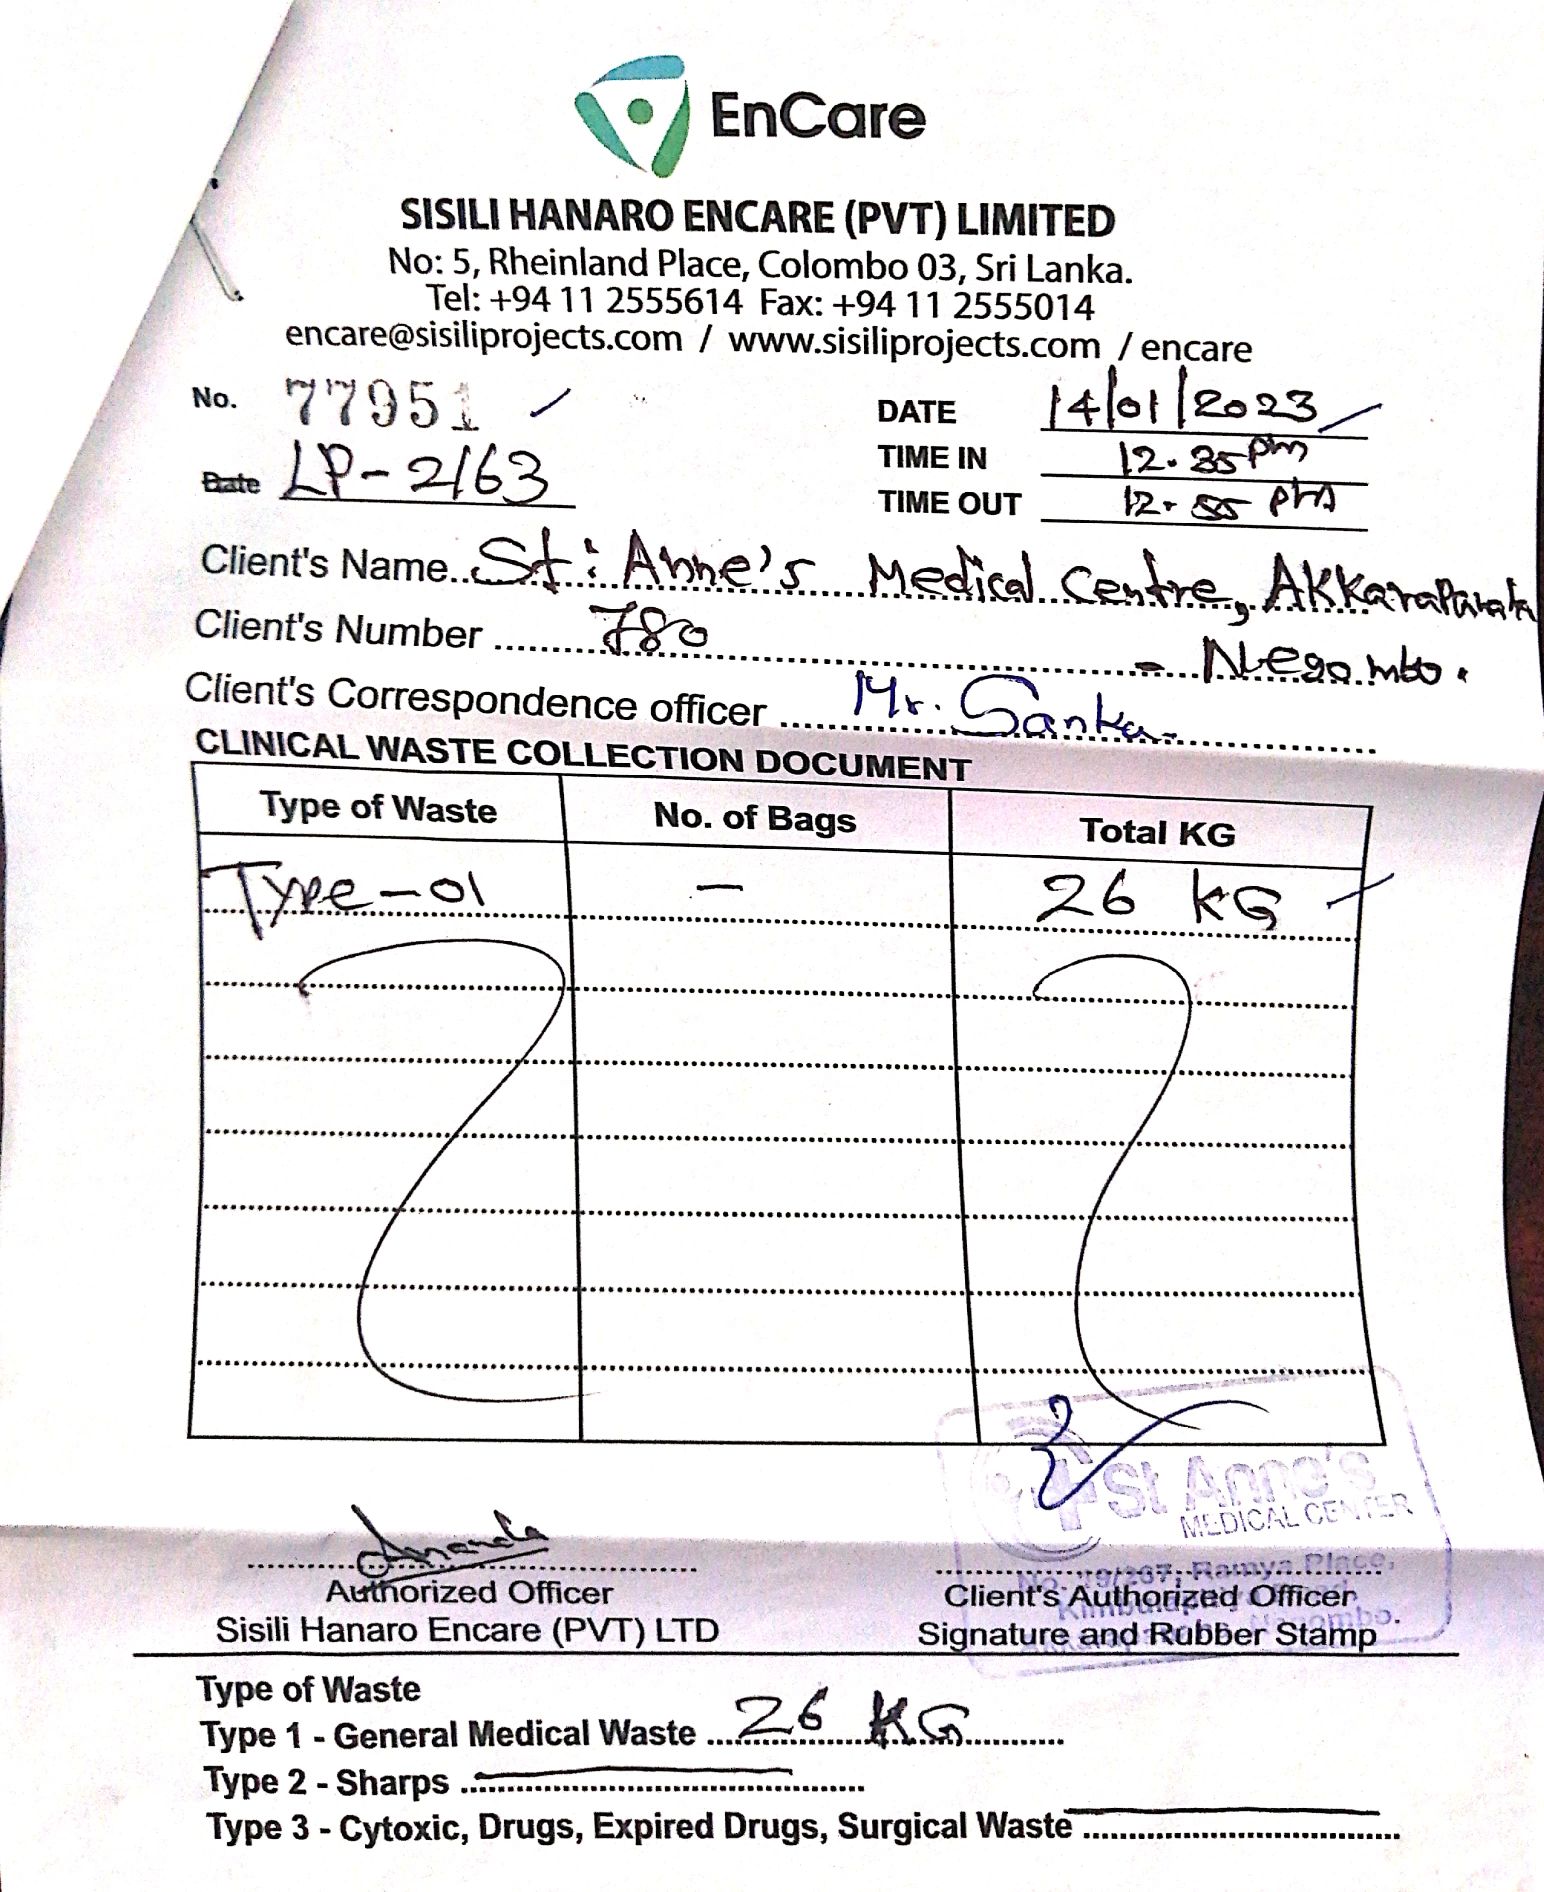 EnCare
SISILI HANARO ENCARE (PVT) LIMITED
No: 5, Rheinland Place, Colombo 03, Sri Lanka.
Tel: +94 11 2555614 Fax: +94 11 2555014
encare@sisiliprojects.com / www.sisiliprojects.com / encare
No. 77951
DATE 14/01/2023
Date LP-2163
TIME IN 12.35 pm
TIME OUT 12.55 pm
Client's Name St: Anne's Medical Centre, Akkarapanaha
Client's Number 780 - Negombo.
Client's Correspondence officer Mr. Sanka
CLINICAL WASTE COLLECTION DOCUMENT
Type of Waste No. of Bags Total KG
Type-01 - 26 KG
St Anne's
MEDICAL CENTER
No. 19/267, Ramya Place,
Negombo.
Ananda
Authorized Officer
Sisili Hanaro Encare (PVT) LTD
Client's Authorized Officer
Signature and Rubber Stamp
Type of Waste
Type 1 - General Medical Waste 26 KG
Type 2 - Sharps
Type 3 - Cytoxic, Drugs, Expired Drugs, Surgical Waste